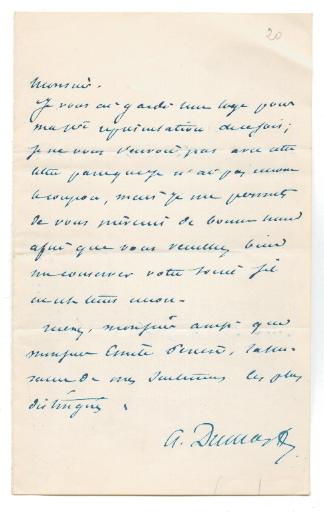 20
Monsieur.
Je vous ai gardé une loge pour
ma 1ère représentation de ce soir ;
je ne vous l'envoie pas avec cette
lettre parce que je n'ai pas encore
le coupon, mais je me permets
de vous prévenir de bonne heure
afin que vous veuillez bien
me conserver votre soirée s'il
en est temps encore.
Recevez, monsieur ainsi que
monsieur Emile Pereire, l'assu-
rance de mes sentiments les plus
distingués.
A. Dumas f.